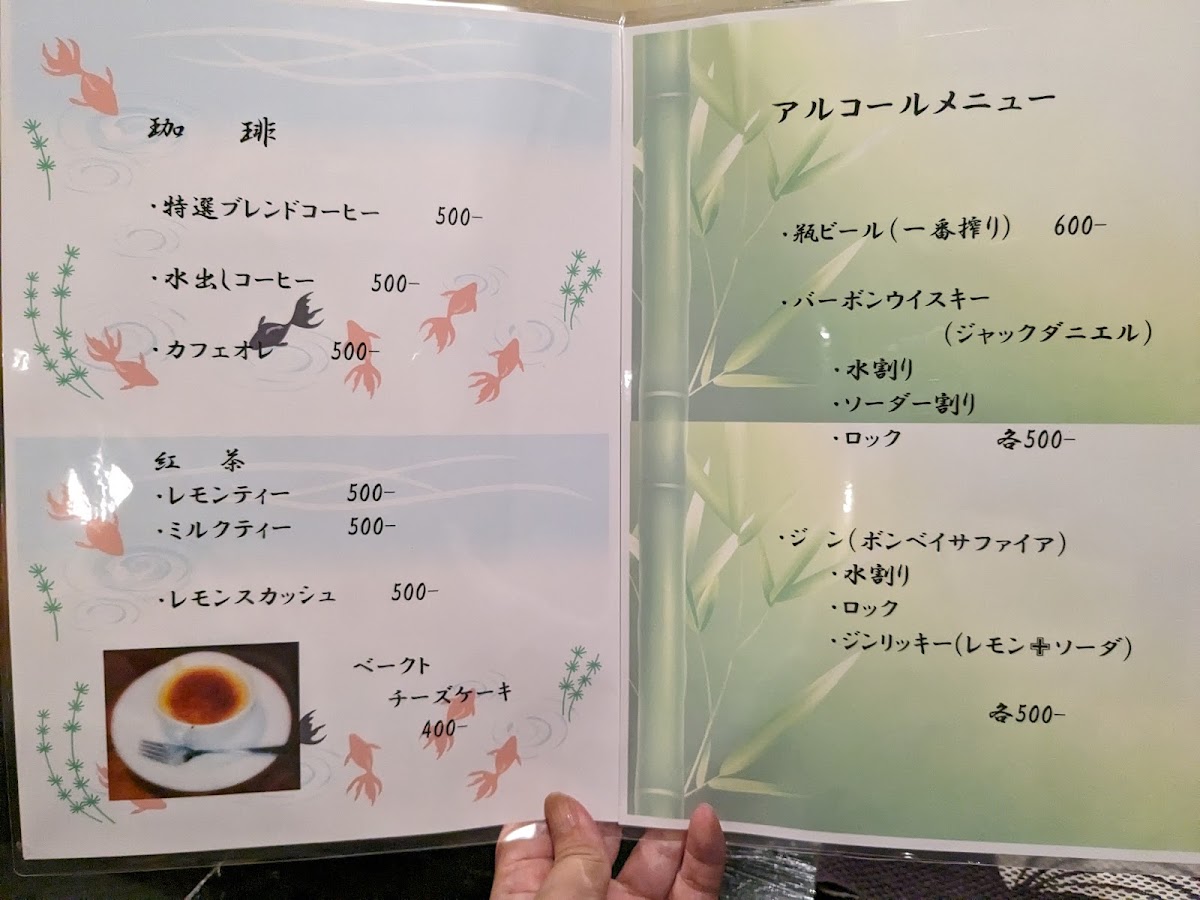 珈 琲
・特選ブレンドコーヒー 500-
・水出しコーヒー 500-
・カフェオレ 500-
紅 茶
・レモンティー 500-
・ミルクティー 500-
・レモンスカッシュ 500-
ベークト
チーズケーキ
400-
アルコールメニュー
・瓶ビール(一番搾り) 600-
・バーボンウイスキー
(ジャックダニエル)
・水割り
・ソーダー割り
・ロック 各500-
・ジン(ボンベイサファイア)
・水割り
・ロック
・ジンリッキー(レモン✙ソーダ)
各500-